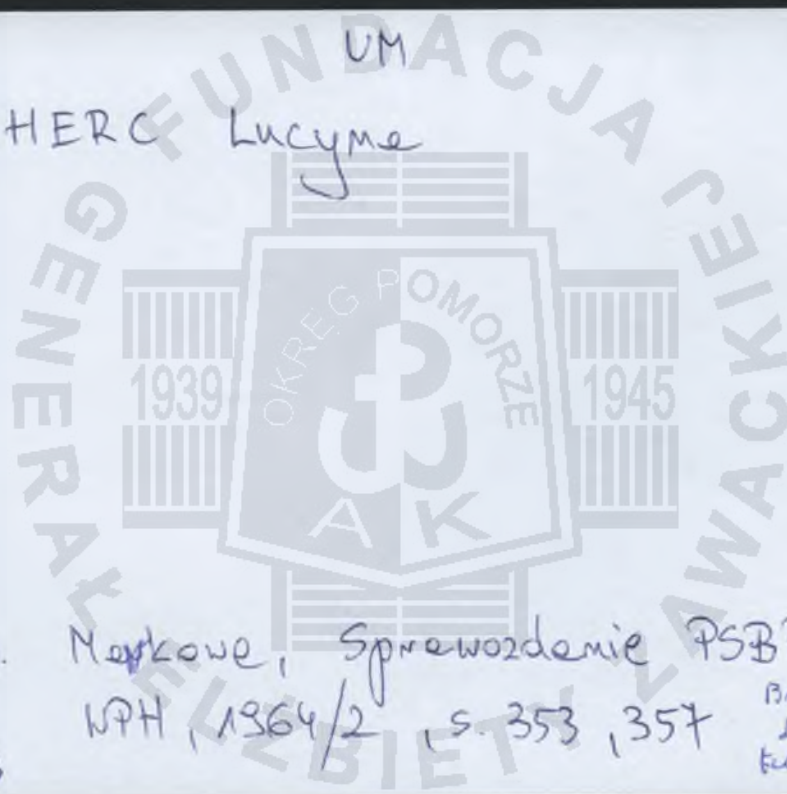 UM
HERC Lucyna
Markowe, Sprawozdanie PSB
WPH, 1964/2, s. 353, 357
FUNDACJA GENERAŁ ELŻBIETY ZAWACKIEJ
OKRĘG POMORZE
1939
1945
AK